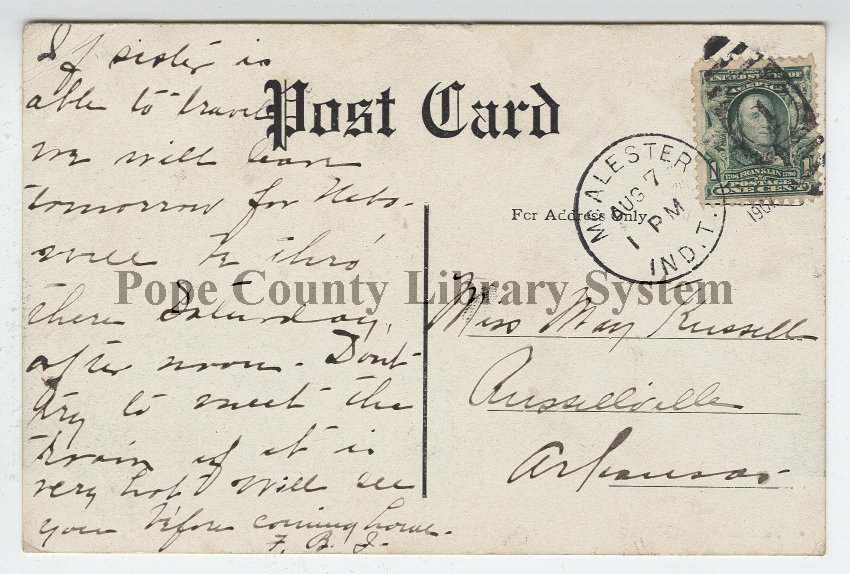 If sister is
able to travel
we will leave
tomorrow for Nebo-
will be thro'
there Saturday,
after noon. Dont
try to meet the
train if it is
very hot. Will see
you before coming home.
F. B. J.
Post Card
For Address Only.
McALESTER
AUG 7
1 PM
IND. T.
UNITED STATES OF
AMERICA
1706 FRANKLIN 1790
POSTAGE
1 ONE CENT 1
Miss May Russell
Russellville
Arkansas
Pope County Library System